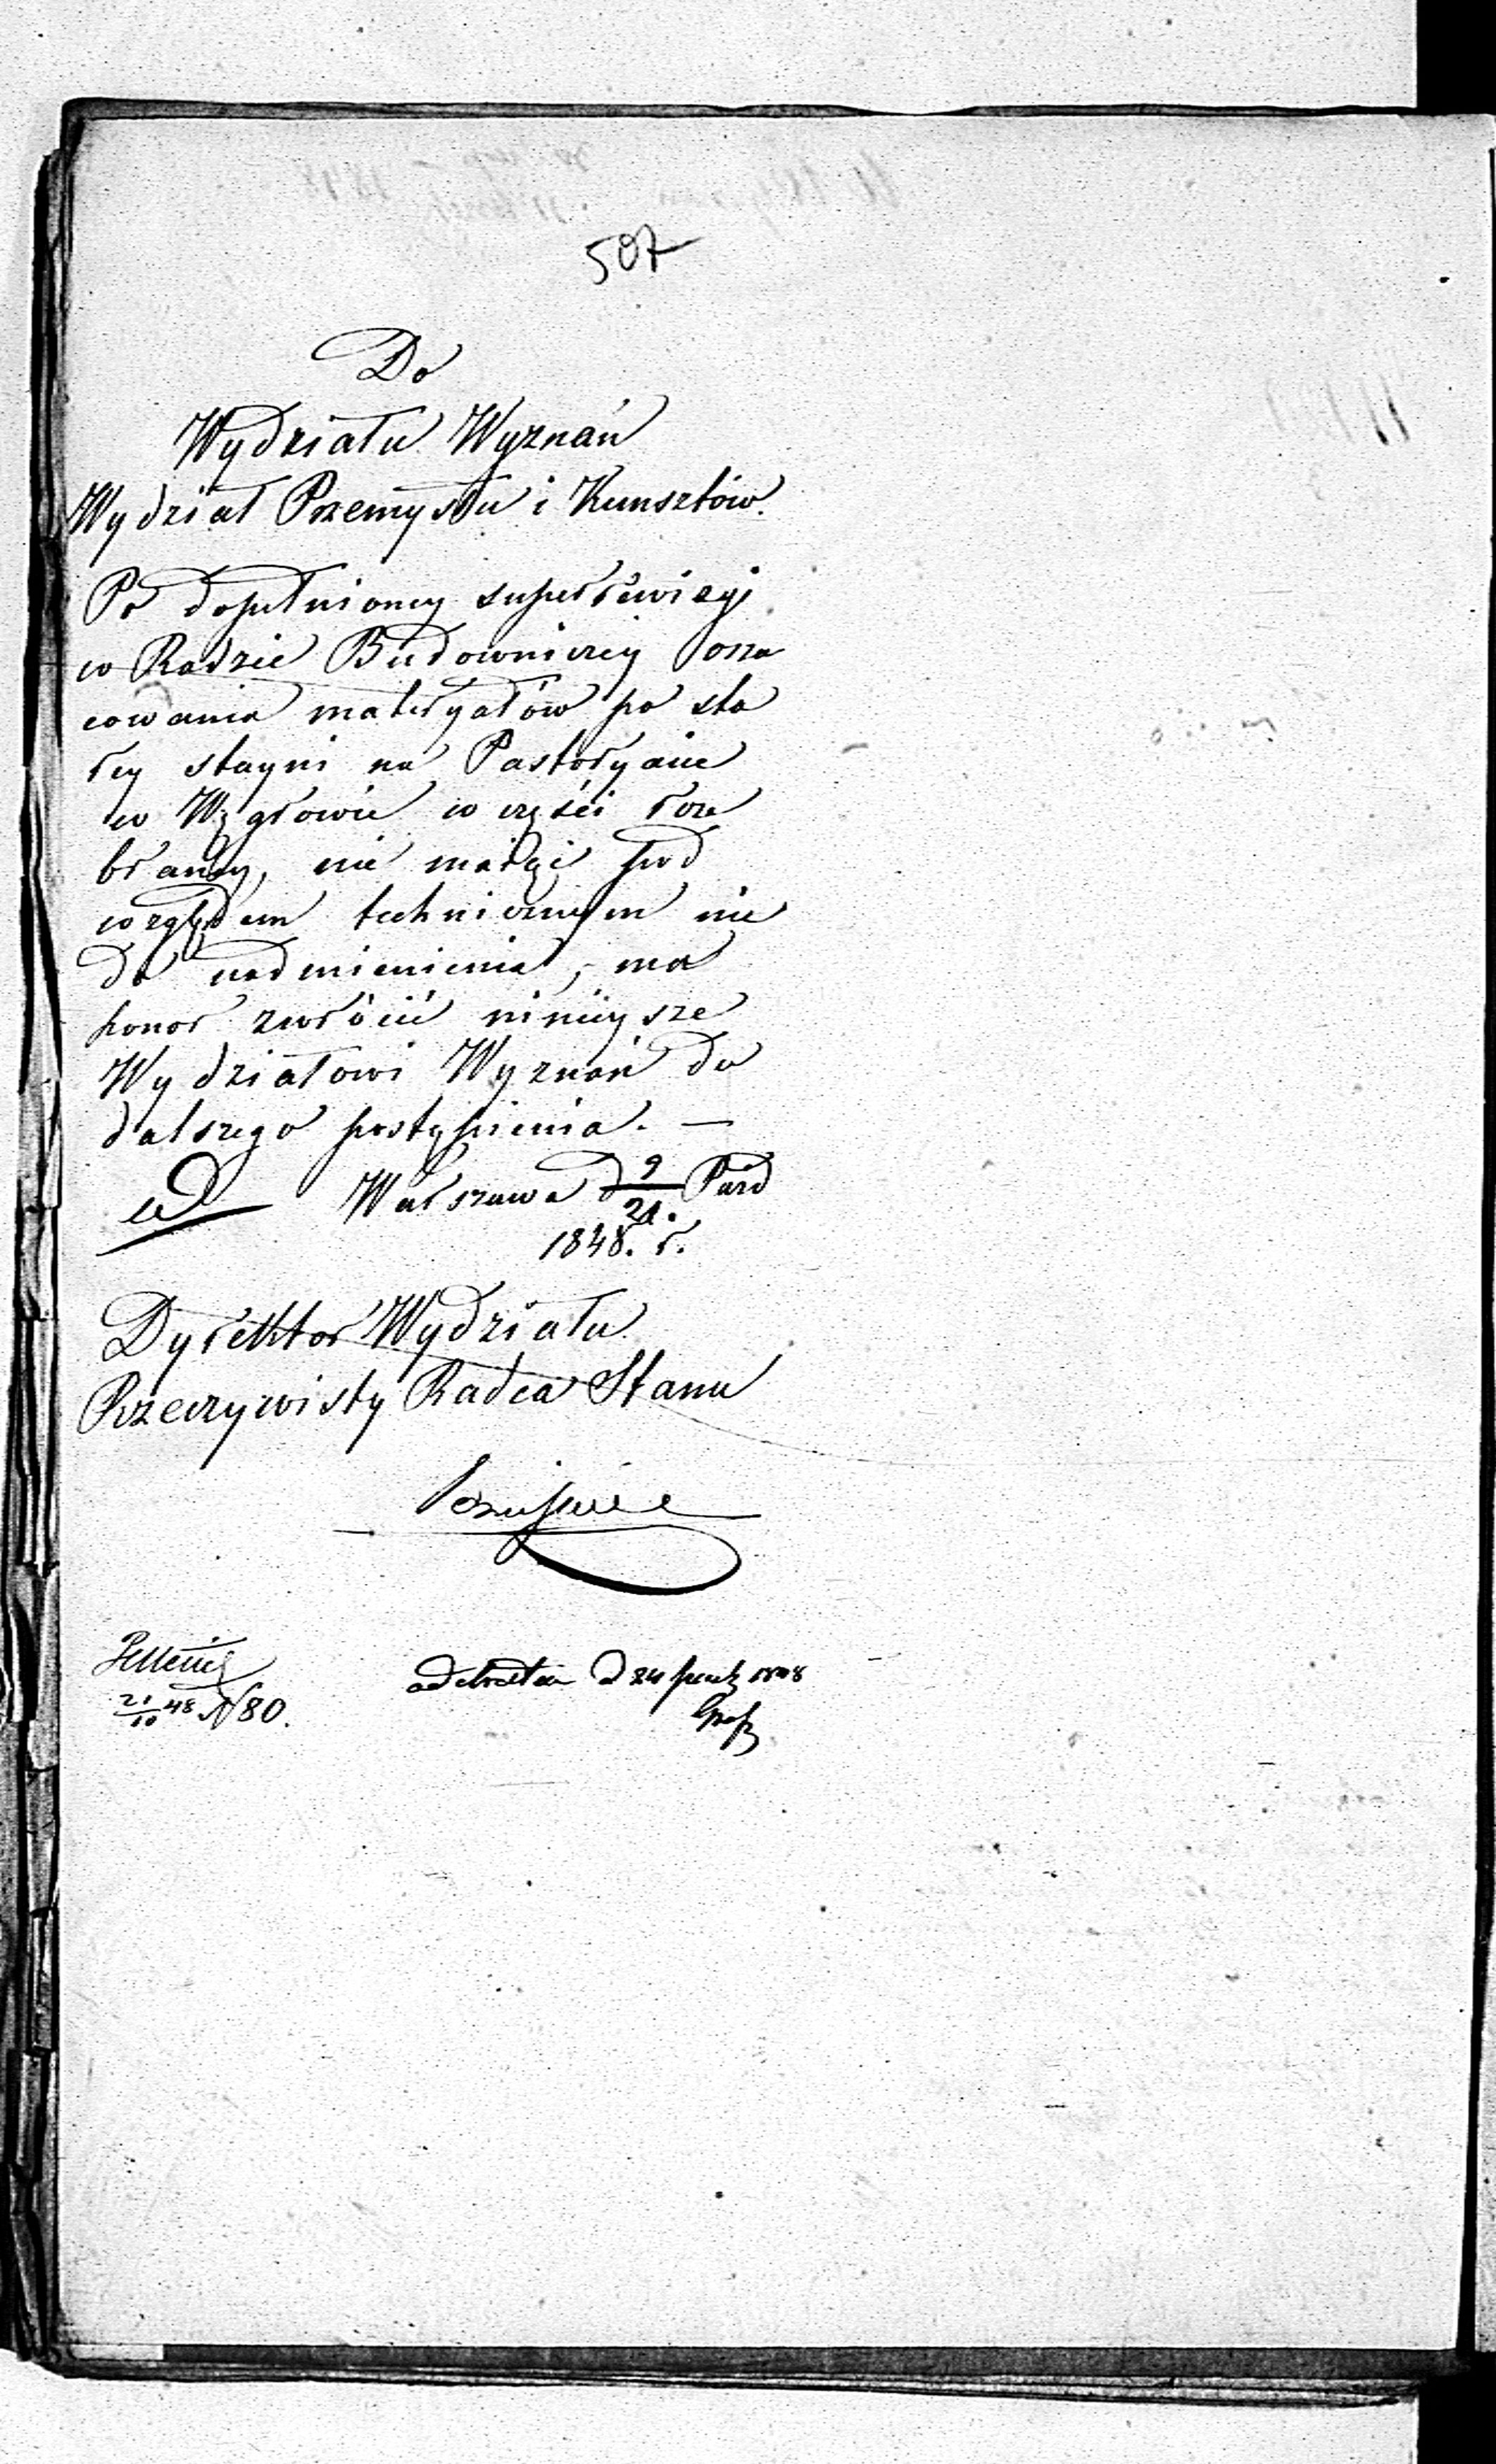 507
Do
Wydziału Wyznań
Wydział Przemysłu i Kunsztów.
Po dopełnioney superrewizyi
w Radzie Budowniczey osza
cowania materyałów po sta
rey stayni na Pastoryanie
w Węgrowie w części roze
braney, nie maiąc pod
względem technicznym nic
do nadmienienia, ma
honor zwrócić ninieysze
Wydziałowi Wyznań do
dalszego postąpienia. —
Warszawa d 9/21. Paźd
1848. r.
Dyrektor Wydziału
Rzeczywisty Radca Stanu
21/10 48 N 80.
d 24 1848